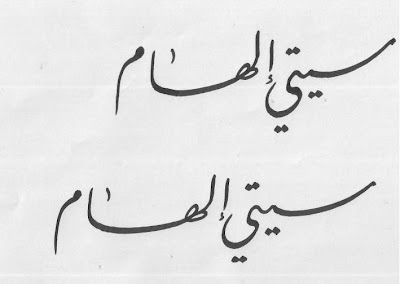 سيتي إلهام
سيتي إلهام